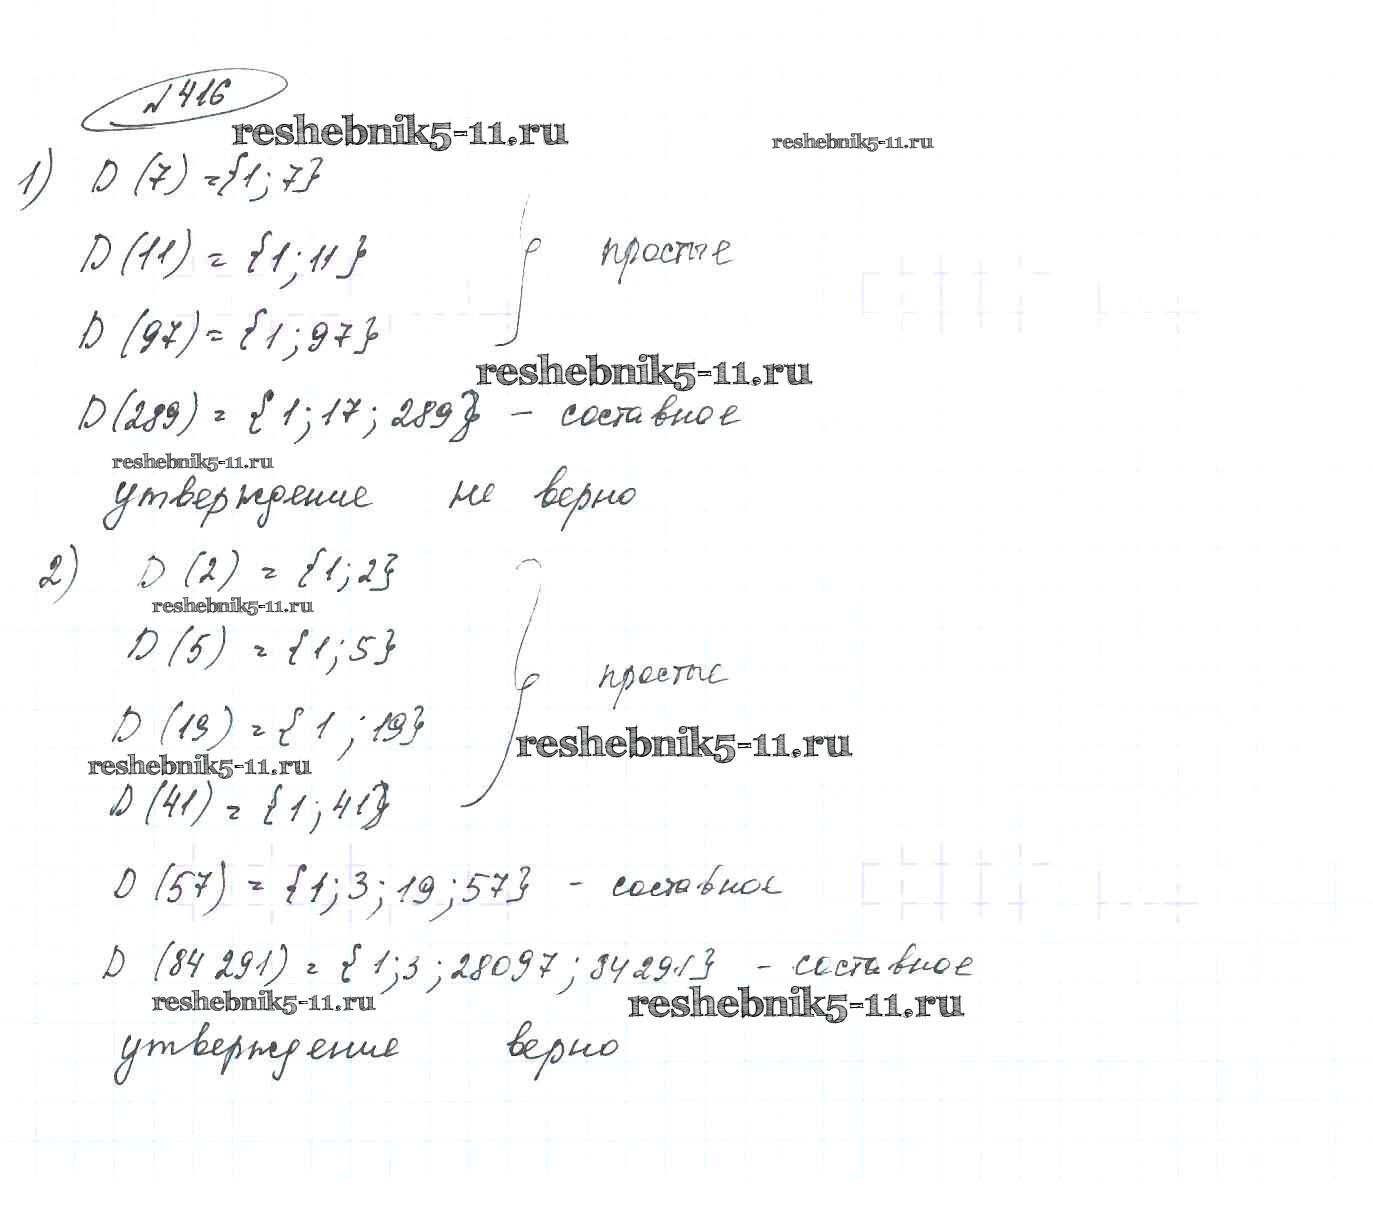 № 416
reshebnik5-11.ru
reshebnik5-11.ru
1) D (7) = {1; 7}
D (11) = {1; 11}
простые
D (97) = {1; 97}
reshebnik5-11.ru
D (289) = {1; 17; 289} - составное
reshebnik5-11.ru
утверждение не верно
2) D (2) = {1; 2}
reshebnik5-11.ru
D (5) = {1; 5}
простые
D (19) = {1; 19}
reshebnik5-11.ru
reshebnik5-11.ru
D (41) = {1; 41}
D (57) = {1; 3; 19; 57} - составное
D (84 291) = {1; 3; 28097; 84291} - составное
reshebnik5-11.ru
reshebnik5-11.ru
утверждение верно